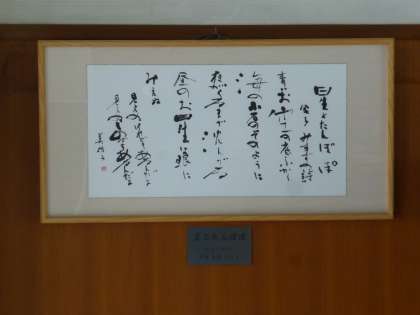 星とたんぽぽ
金子みすゞの詩
青いお空の底ふかく
海の小石のそのように
夜がくるまで沈んでる
昼のお星は眼に
みえぬ
見えぬけれどもあるんだよ
見えぬものでもあるんだよ